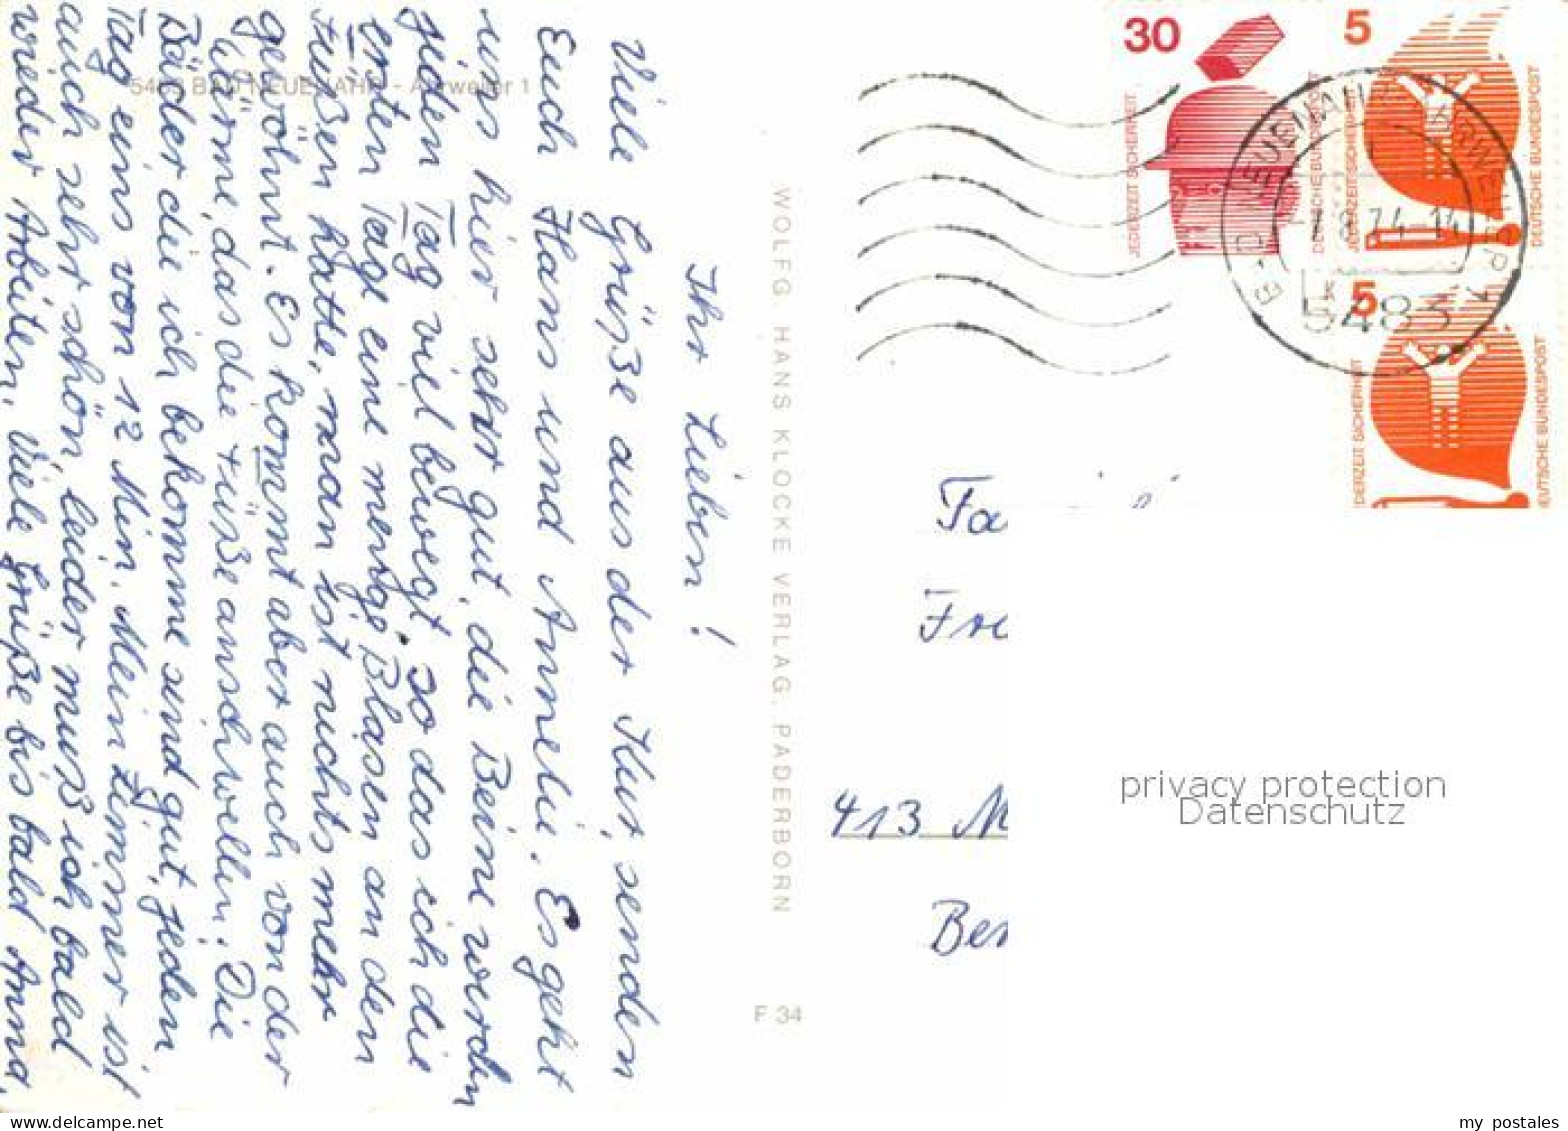 Ihr Lieben!
Viele Grüße aus der Kur, senden
Euch Hans und Annelie. Es geht
uns hier sehr gut, die Beine werden
jeden Tag viel bewegt. so das ich die
ersten Tage eine menge Blasen an den
Füßen hatte, man ist nichts mehr
gewöhnt. Es kommt aber auch von der
Wärme, das die Füße anschwellen. Die
Bäder die ich bekomme sind gut. Jeden
Tag eins von 12 Min. Mein Zimmer ist
auch sehr schön, leider muß ich bald
wieder Arbeiten. Viele Grüße bis bald Anna.
5483 BAD NEUENAHR - Ahrweiler 1
WOLFG. HANS KLOCKE VERLAG, PADERBORN
F 34
30
JEDERZEIT SICHERHEIT
DEUTSCHE BUNDESPOST
5
JEDERZEIT SICHERHEIT
DEUTSCHE BUNDESPOST
5
DERZEIT SICHERHEIT
DEUTSCHE BUNDESPOST
NEUENAHR-AHRWEILER
74-14
5483
Fa
Fre
413 M
Ber
privacy protection
Datenschutz
my postales